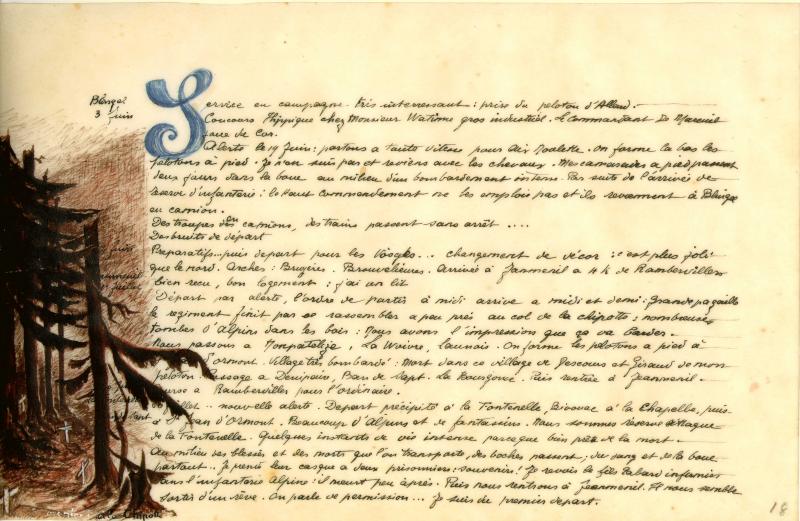 Blingel
3 juin
Service en campagne. Très interressant : prise du peloton d'Allard.
Concours Hippique chez Monsieur Watinne gros industriel. Le Commandant De Mareuil
joue de cor.
Alerte le 19 Juin : partons a toute vitesse pour Aix Noulette. On forme la bas les
pelotons à pied. Je n'en suis pas et reviens avec les chevaux. Mes camarades a pied passent
deux jours dans la boue au milieu d'un bombardement intense. Par suite de l'arrivée de
reserve d'infanterie : le haut commendement ne les emploie pas et ils reviennent à Blingel
en camion.
Des troupes en camions, des trains passent sans arrêt ....
Des bruits de départ
juin
Preparatifs... puis depart pour les Vosges... changement de décor : c'est plus joli
que le nord. Arches : Bruyères. Brouvelières. Arrivée à Jeanmenil a 4 k de Rambervillers
Bien recu, bon logement : j'ai un lit
Juillet
Départ par alerte, l'ordre de partir à midi arrive a midi et demi : Grande pagaille
le regiment finit par se rassembler a peu près au col de la chipotte : nombreuses
tombes d'Alpins dans les bois : Nous avons l'impression que ça va barder.
Nous passons a Monpatelize, La Woivre, Launois. On forme les pelotons a pied à
d'Ormont. Village très bombardé : Mort dans ce village de Jescours et Giraud de mon
peloton. Passage a Denipaire, Ban de Sapt. La Hourgoué. Puis rentrée à Jeanmenil.
a Rambervillers pour l'ordinaire.
juillet .. nouvelle alerte. Depart précipité a la Fontenelle, Bivouac à la Chapelle, puis
a St Jean d'Ormont. Beaucoup d'Alpins et de fantassins. Nous sommes reserve d'attaque
de la Fontenelle. Quelques instants de vie intense parceque bien près de la mort.
Au milieu des blessés et des morts que l'on transporte, des boches passent ; du sang et de la boue
partout. Je prends leur casque a deux prisonniers : souvenirs ! Je revois le fils Rabard infirmier
dans l'infanterie Alpine : il meurt peu après. Puis nous rentrons à Jeanmenil. Il nous semble
sortir d'un rêve. On parle de permission... Je suis du premier depart.
a la Chipotte
18